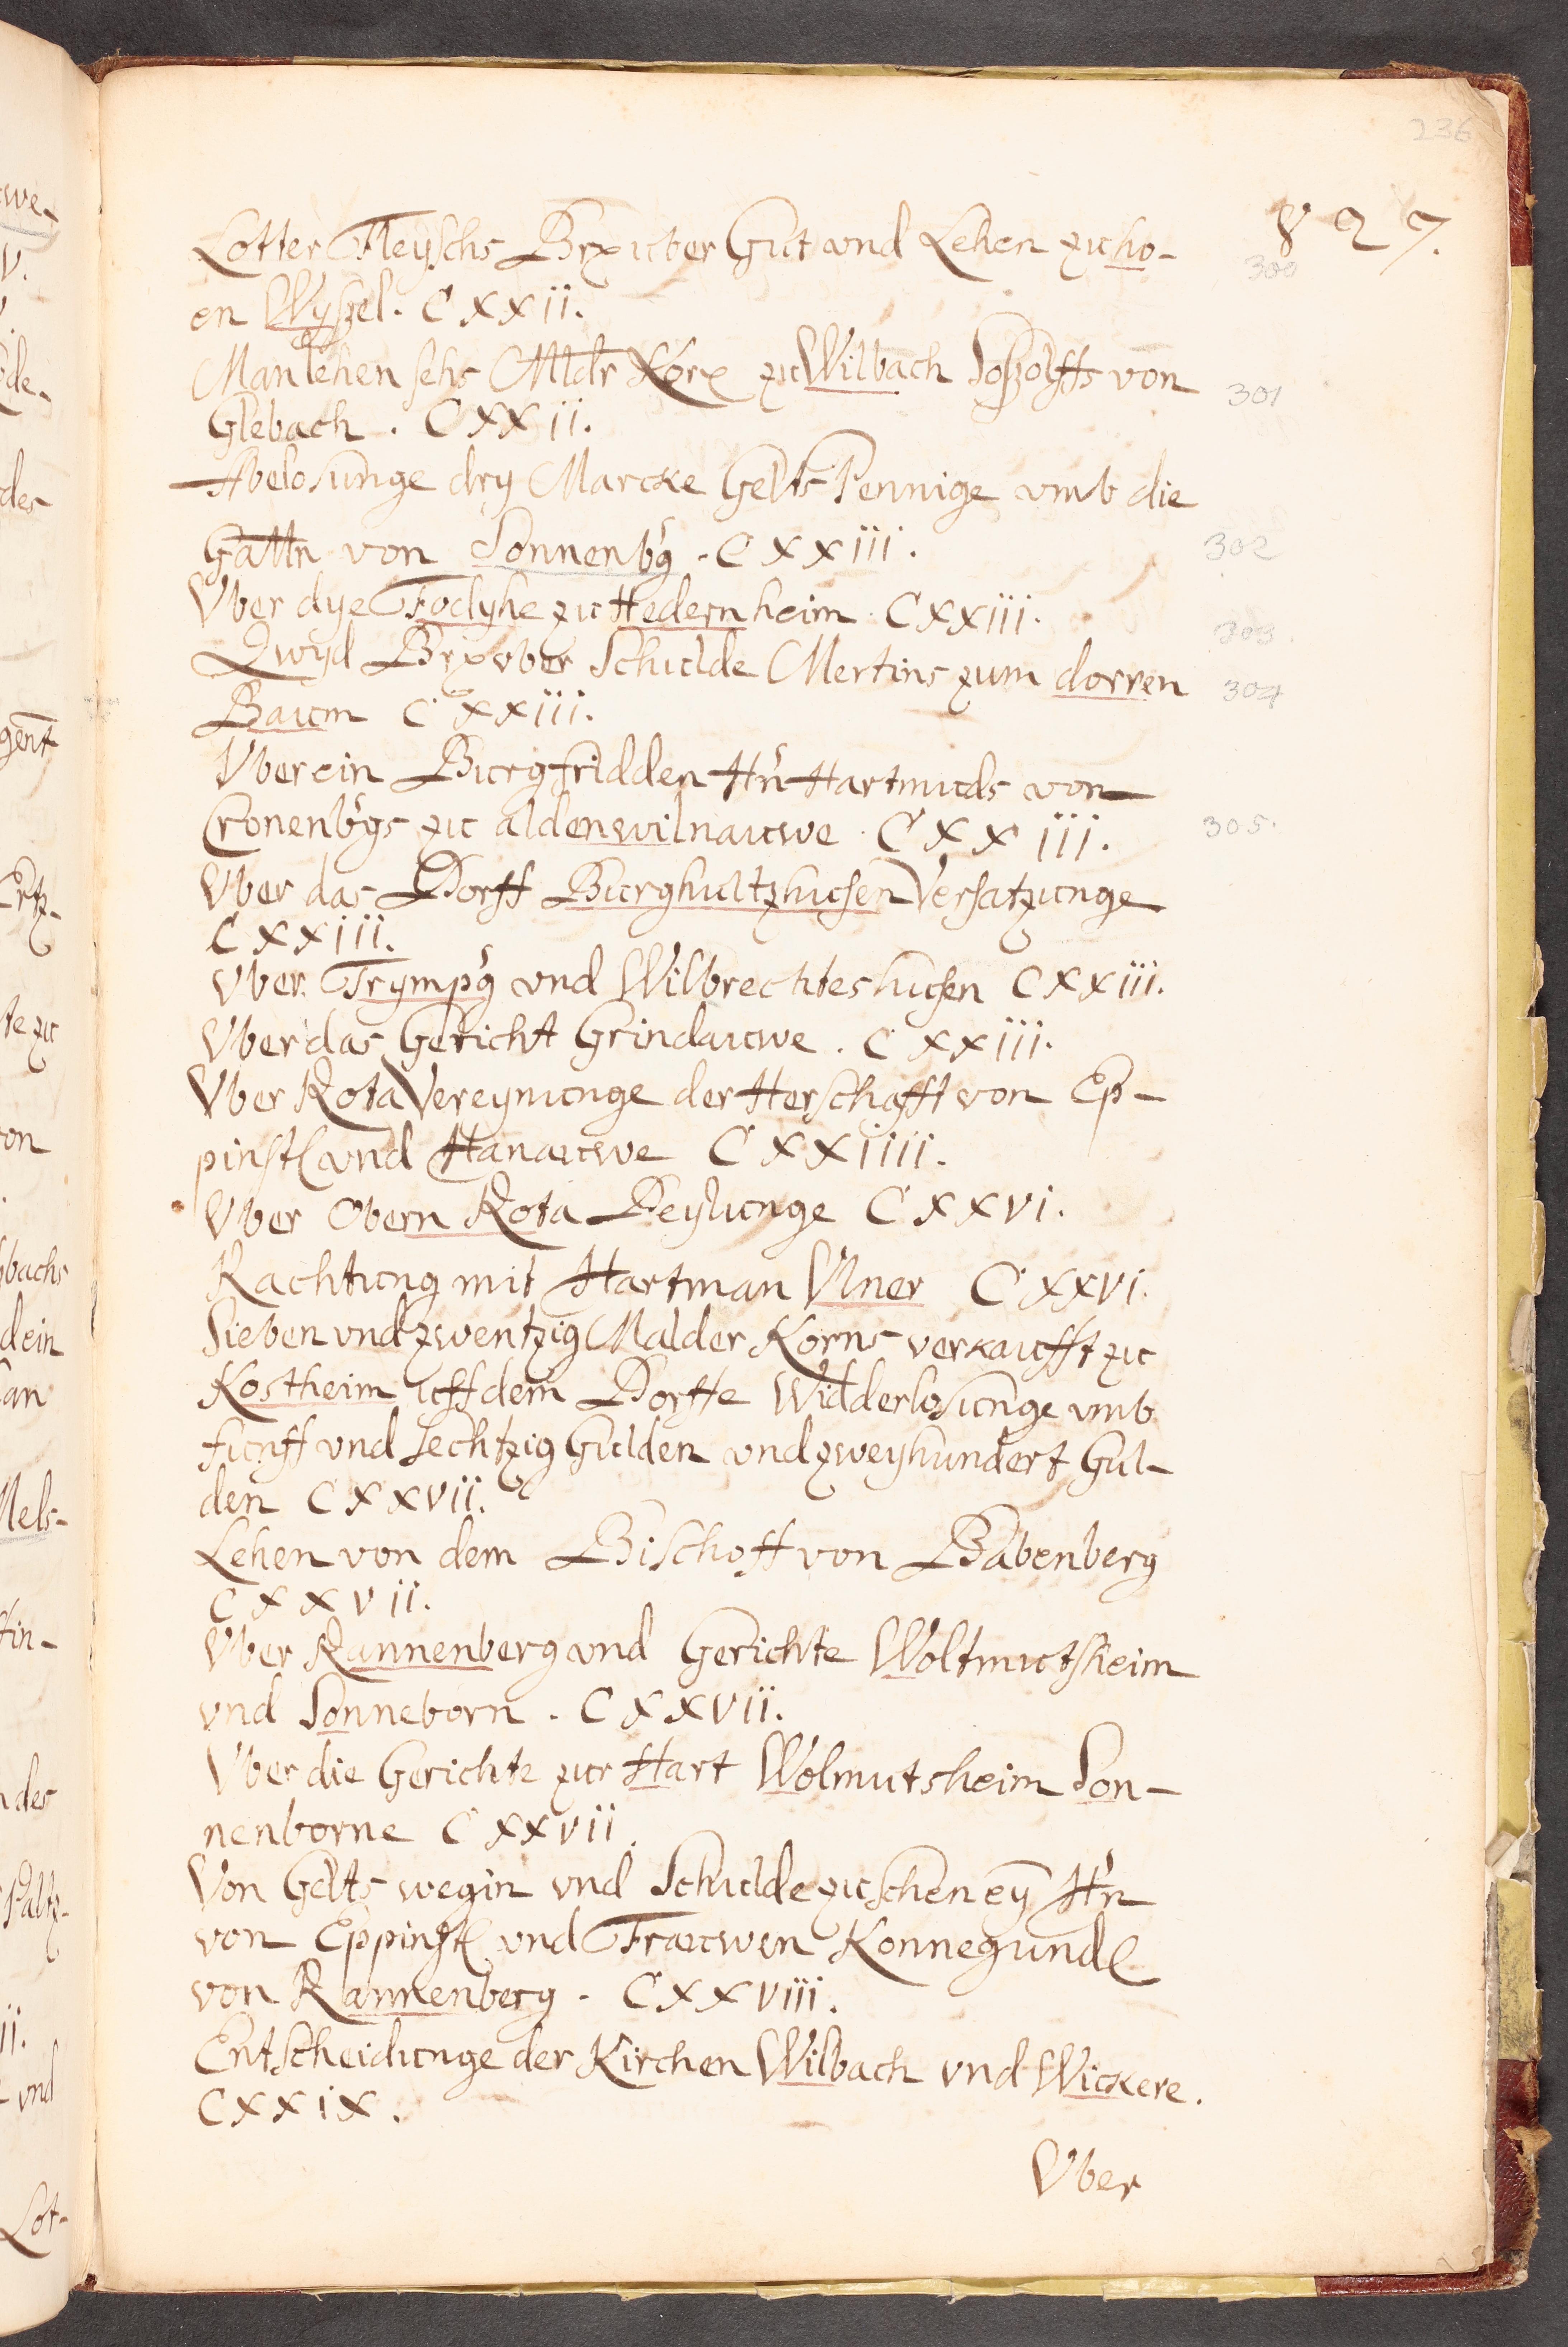 236
827.
Lotter Fleyschs Brx uber Gut und Lehen zu ho-
300
en Wyszel. CXXII.
Manlehen sehs Mldr Korx zu Wilbach Doszolffs von
301
Glebach. CXXII.
Abelosunge dry Marcke Gelts Pennige vmb die
Gattn von Sonnenbg. CXXIII.
302
Vber dye Fodyhe zu Hedernheim. CXXIII.
303.
Qwyd Brx vber Schulde Mertins zum dorren
304
Baum CXXIII.
Vber ein Burgfridden Hn Hartmuds von
Cronenbgs zu aldenwilnauwe. CXXIII.
305.
Vber das Dorff Burghultzhusen Versatzunge
CXXIII.
Vber Trympg vnd Wilbrechteshusen CXXIII.
Vber das Gericht Grindauwe. CXXIII.
Vber Rota Vereynunge der Herschafft von Ep-
pinst vnd Hanauwe CXXIIII.
Vber Obern Rota Deylunge CXXVI.
Rachtung mit Hartman Vlner CXXVI.
Sieben vnd zwentzig Malder Korns verkaufft zu
Kostheim uff dem Dorffe Widderlosunge vmb
funff vnd sechtzig Gulden vnd zweyhundert Gul-
den CXXVII.
Lehen von dem Bischoff von Babenberg
CXXVII.
Vber Rannenberg vnd Gerichte Woltmutsheim
vnd Sonneborn. CXXVII.
Vber die Gerichte zur Hart Wolmutsheim Son-
nenborne CXXVII.
Von Gelts wegin vnd Schulde zuschen ey Hn
von Eppinst vnd Frauwen Konnegund
von Rannenberg. CXXVIII.
Entscheidunge der Kirchen Wilbach vnd Wickere.
CXXIX.
Vber